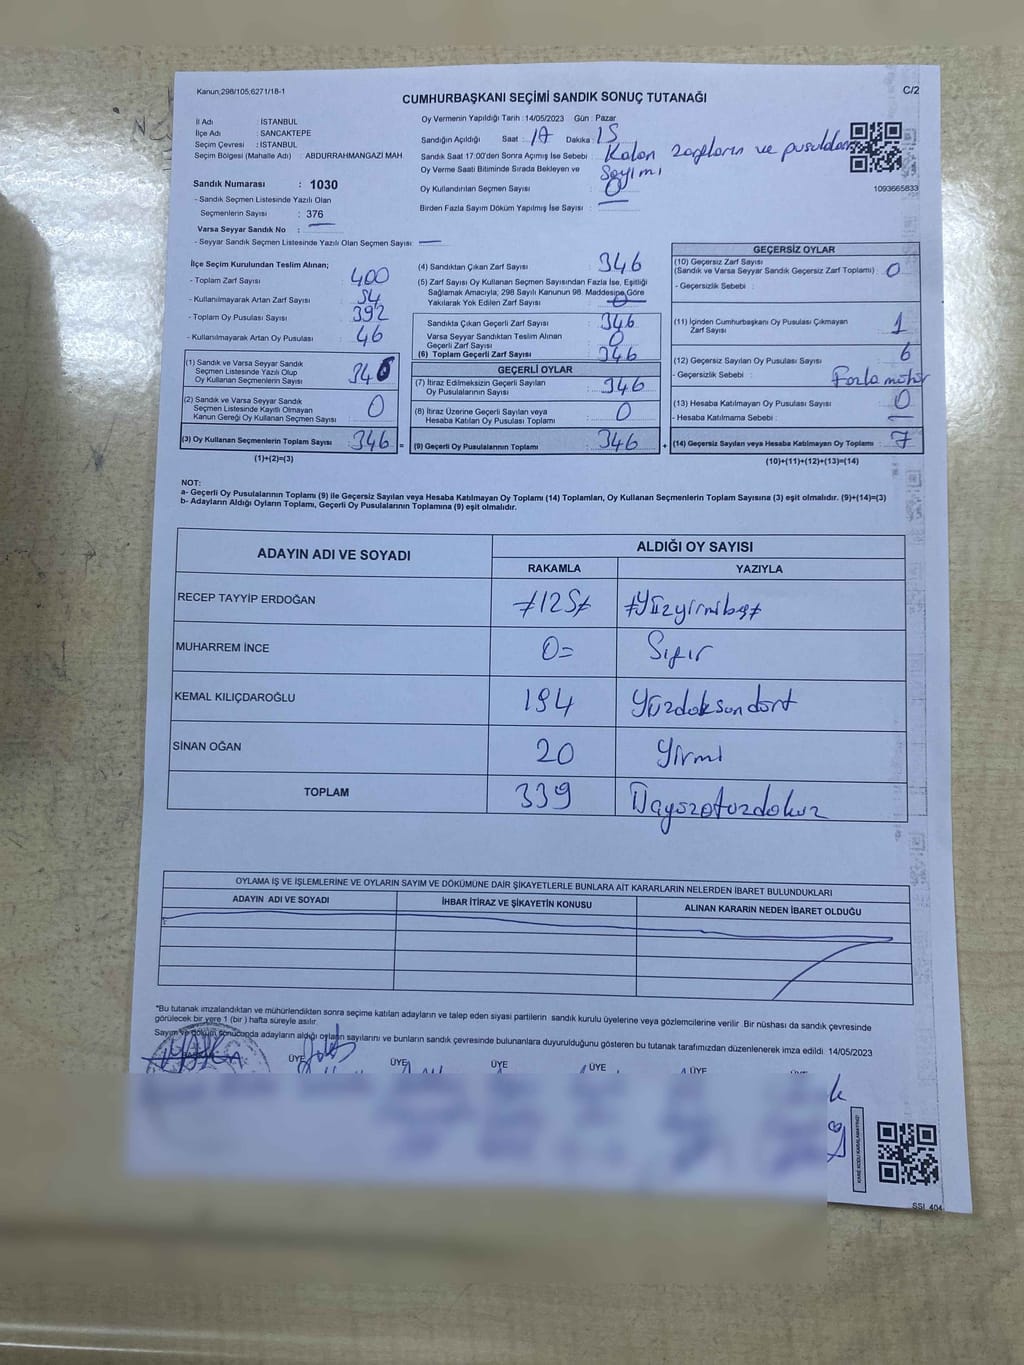 Kanun;298/105;6271/18-1
C/2
CUMHURBAŞKANI SEÇİMİ SANDIK SONUÇ TUTANAĞI
İl Adı : İSTANBUL
İlçe Adı : SANCAKTEPE
Seçim Çevresi : İSTANBUL
Seçim Bölgesi (Mahalle Adı) : ABDURRAHMANGAZİ MAH
Sandık Numarası : 1030
- Sandık Seçmen Listesinde Yazılı Olan
Seçmenlerin Sayısı : 376
Varsa Seyyar Sandık No :
- Seyyar Sandık Seçmen Listesinde Yazılı Olan Seçmen Sayısı:
Oy Vermenin Yapıldığı Tarih : 14/05/2023 Gün : Pazar
Sandığın Açıldığı Saat : 17 Dakika : 15
Sandık Saat 17:00'den Sonra Açımış İse Sebebi : Kalan zarfların ve pusulaların
Oy Verme Saati Bitiminde Sırada Bekleyen ve Sayımı
Oy Kullandırılan Seçmen Sayısı : 0
Birden Fazla Sayım Döküm Yapılmış İse Sayısı :
1093665833
İlçe Seçim Kurulundan Teslim Alınan;
- Toplam Zarf Sayısı : 400
- Kullanılmayarak Artan Zarf Sayısı : 54
- Toplam Oy Pusulası Sayısı : 392
- Kullanılmayarak Artan Oy Pusulası : 46
(1) Sandık ve Varsa Seyyar Sandık
Seçmen Listesinde Yazılı Olup
Oy Kullanan Seçmenlerin Sayısı : 346
(2) Sandık ve Varsa Seyyar Sandık
Seçmen Listesinde Kayıtlı Olmayan
Kanun Gereği Oy Kullanan Seçmen Sayısı : 0
(3) Oy Kullanan Seçmenlerin Toplam Sayısı : 346 =
(1)+(2)=(3)
(4) Sandıktan Çıkan Zarf Sayısı : 346
(5) Zarf Sayısı Oy Kullanan Seçmen Sayısından Fazla İse, Eşitliği
Sağlamak Amacıyla; 298 Sayılı Kanunun 98. Maddesine Göre
Yakılarak Yok Edilen Zarf Sayısı : 0
Sandıkta Çıkan Geçerli Zarf Sayısı : 346
Varsa Seyyar Sandıktan Teslim Alınan
Geçerli Zarf Sayısı : 0
(6) Toplam Geçerli Zarf Sayısı : 346
GEÇERLİ OYLAR
(7) İtiraz Edilmeksizin Geçerli Sayılan
Oy Pusulalarının Sayısı : 346
(8) İtiraz Üzerine Geçerli Sayılan veya
Hesaba Katılan Oy Pusulası Toplamı : 0
(9) Geçerli Oy Pusulalarının Toplamı : 346 +
GEÇERSİZ OYLAR
(10) Geçersiz Zarf Sayısı
(Sandık ve Varsa Seyyar Sandık Geçersiz Zarf Toplamı) : 0
- Geçersizlik Sebebi :
(11) İçinden Cumhurbaşkanı Oy Pusulası Çıkmayan
Zarf Sayısı : 1
(12) Geçersiz Sayılan Oy Pusulası Sayısı : 6
- Geçersizlik Sebebi : Fazla mühür
(13) Hesaba Katılmayan Oy Pusulası Sayısı : 0
- Hesaba Katılmama Sebebi :
(14) Geçersiz Sayılan veya Hesaba Katılmayan Oy Toplamı : 7
(10)+(11)+(12)+(13)=(14)
NOT:
a- Geçerli Oy Pusulalarının Toplamı (9) ile Geçersiz Sayılan veya Hesaba Katılmayan Oy Toplamı (14) Toplamları, Oy Kullanan Seçmenlerin Toplam Sayısına (3) eşit olmalıdır. (9)+(14)=(3)
b- Adayların Aldığı Oyların Toplamı, Geçerli Oy Pusulalarının Toplamına (9) eşit olmalıdır.
ADAYIN ADI VE SOYADI
ALDIĞI OY SAYISI
RAKAMLA YAZIYLA
RECEP TAYYİP ERDOĞAN ≠125≠ ≠Yüzyirmibeş≠
MUHARREM İNCE 0= Sıfır
KEMAL KILIÇDAROĞLU 194 Yüzdoksandört
SİNAN OĞAN 20 Yirmi
TOPLAM 339
OYLAMA İŞ VE İŞLEMLERİNE VE OYLARIN SAYIM VE DÖKÜMÜNE DAİR ŞİKAYETLERLE BUNLARA AİT KARARLARIN NELERDEN İBARET BULUNDUKLARI
ADAYIN ADI VE SOYADI
İHBAR İTİRAZ VE ŞİKAYETİN KONUSU
ALINAN KARARIN NEDEN İBARET OLDUĞU
*Bu tutanak imzalandıktan ve mühürlendikten sonra seçime katılan adayların ve talep eden siyasi partilerin sandık kurulu üyelerine veya gözlemcilerine verilir. Bir nüshası da sandık çevresinde
görülecek bir yere 1 (bir ) hafta süreyle asılır.
Sayım ve döküm sonucunda adayların aldığı oyların sayılarını ve bunların sandık çevresinde bulunanlara duyurulduğunu gösteren bu tutanak tarafımızdan düzenlenerek imza edildi. 14/05/2023
ÜYE ÜYE ÜYE ÜYE ÜYE ÜYE
KARE KODU KARALAMAYINIZ!
SSI_404